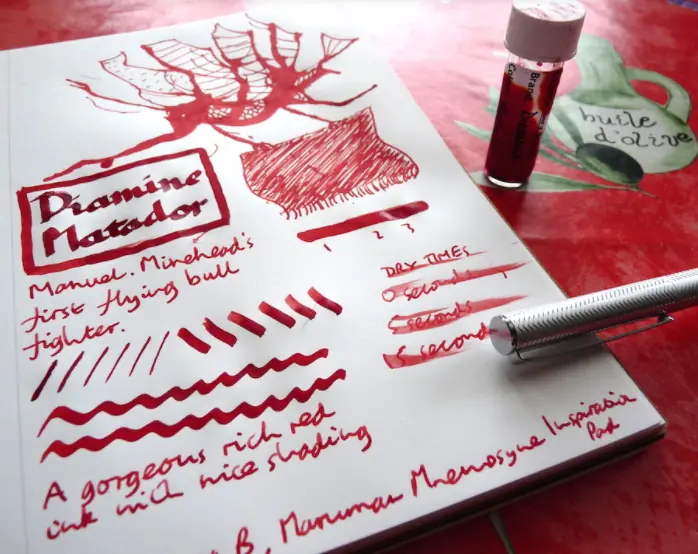 Diamine
Matador
Manuel. Minehead's
first flying bull
fighter.
1 2 3
DRY TIMES
0 seconds
seconds
5 seconds
A gorgeous rich red
ink with nice shading
B, Maruman Mnemosyne Inspiration
Pad
Brand
Co
huile
d'olive